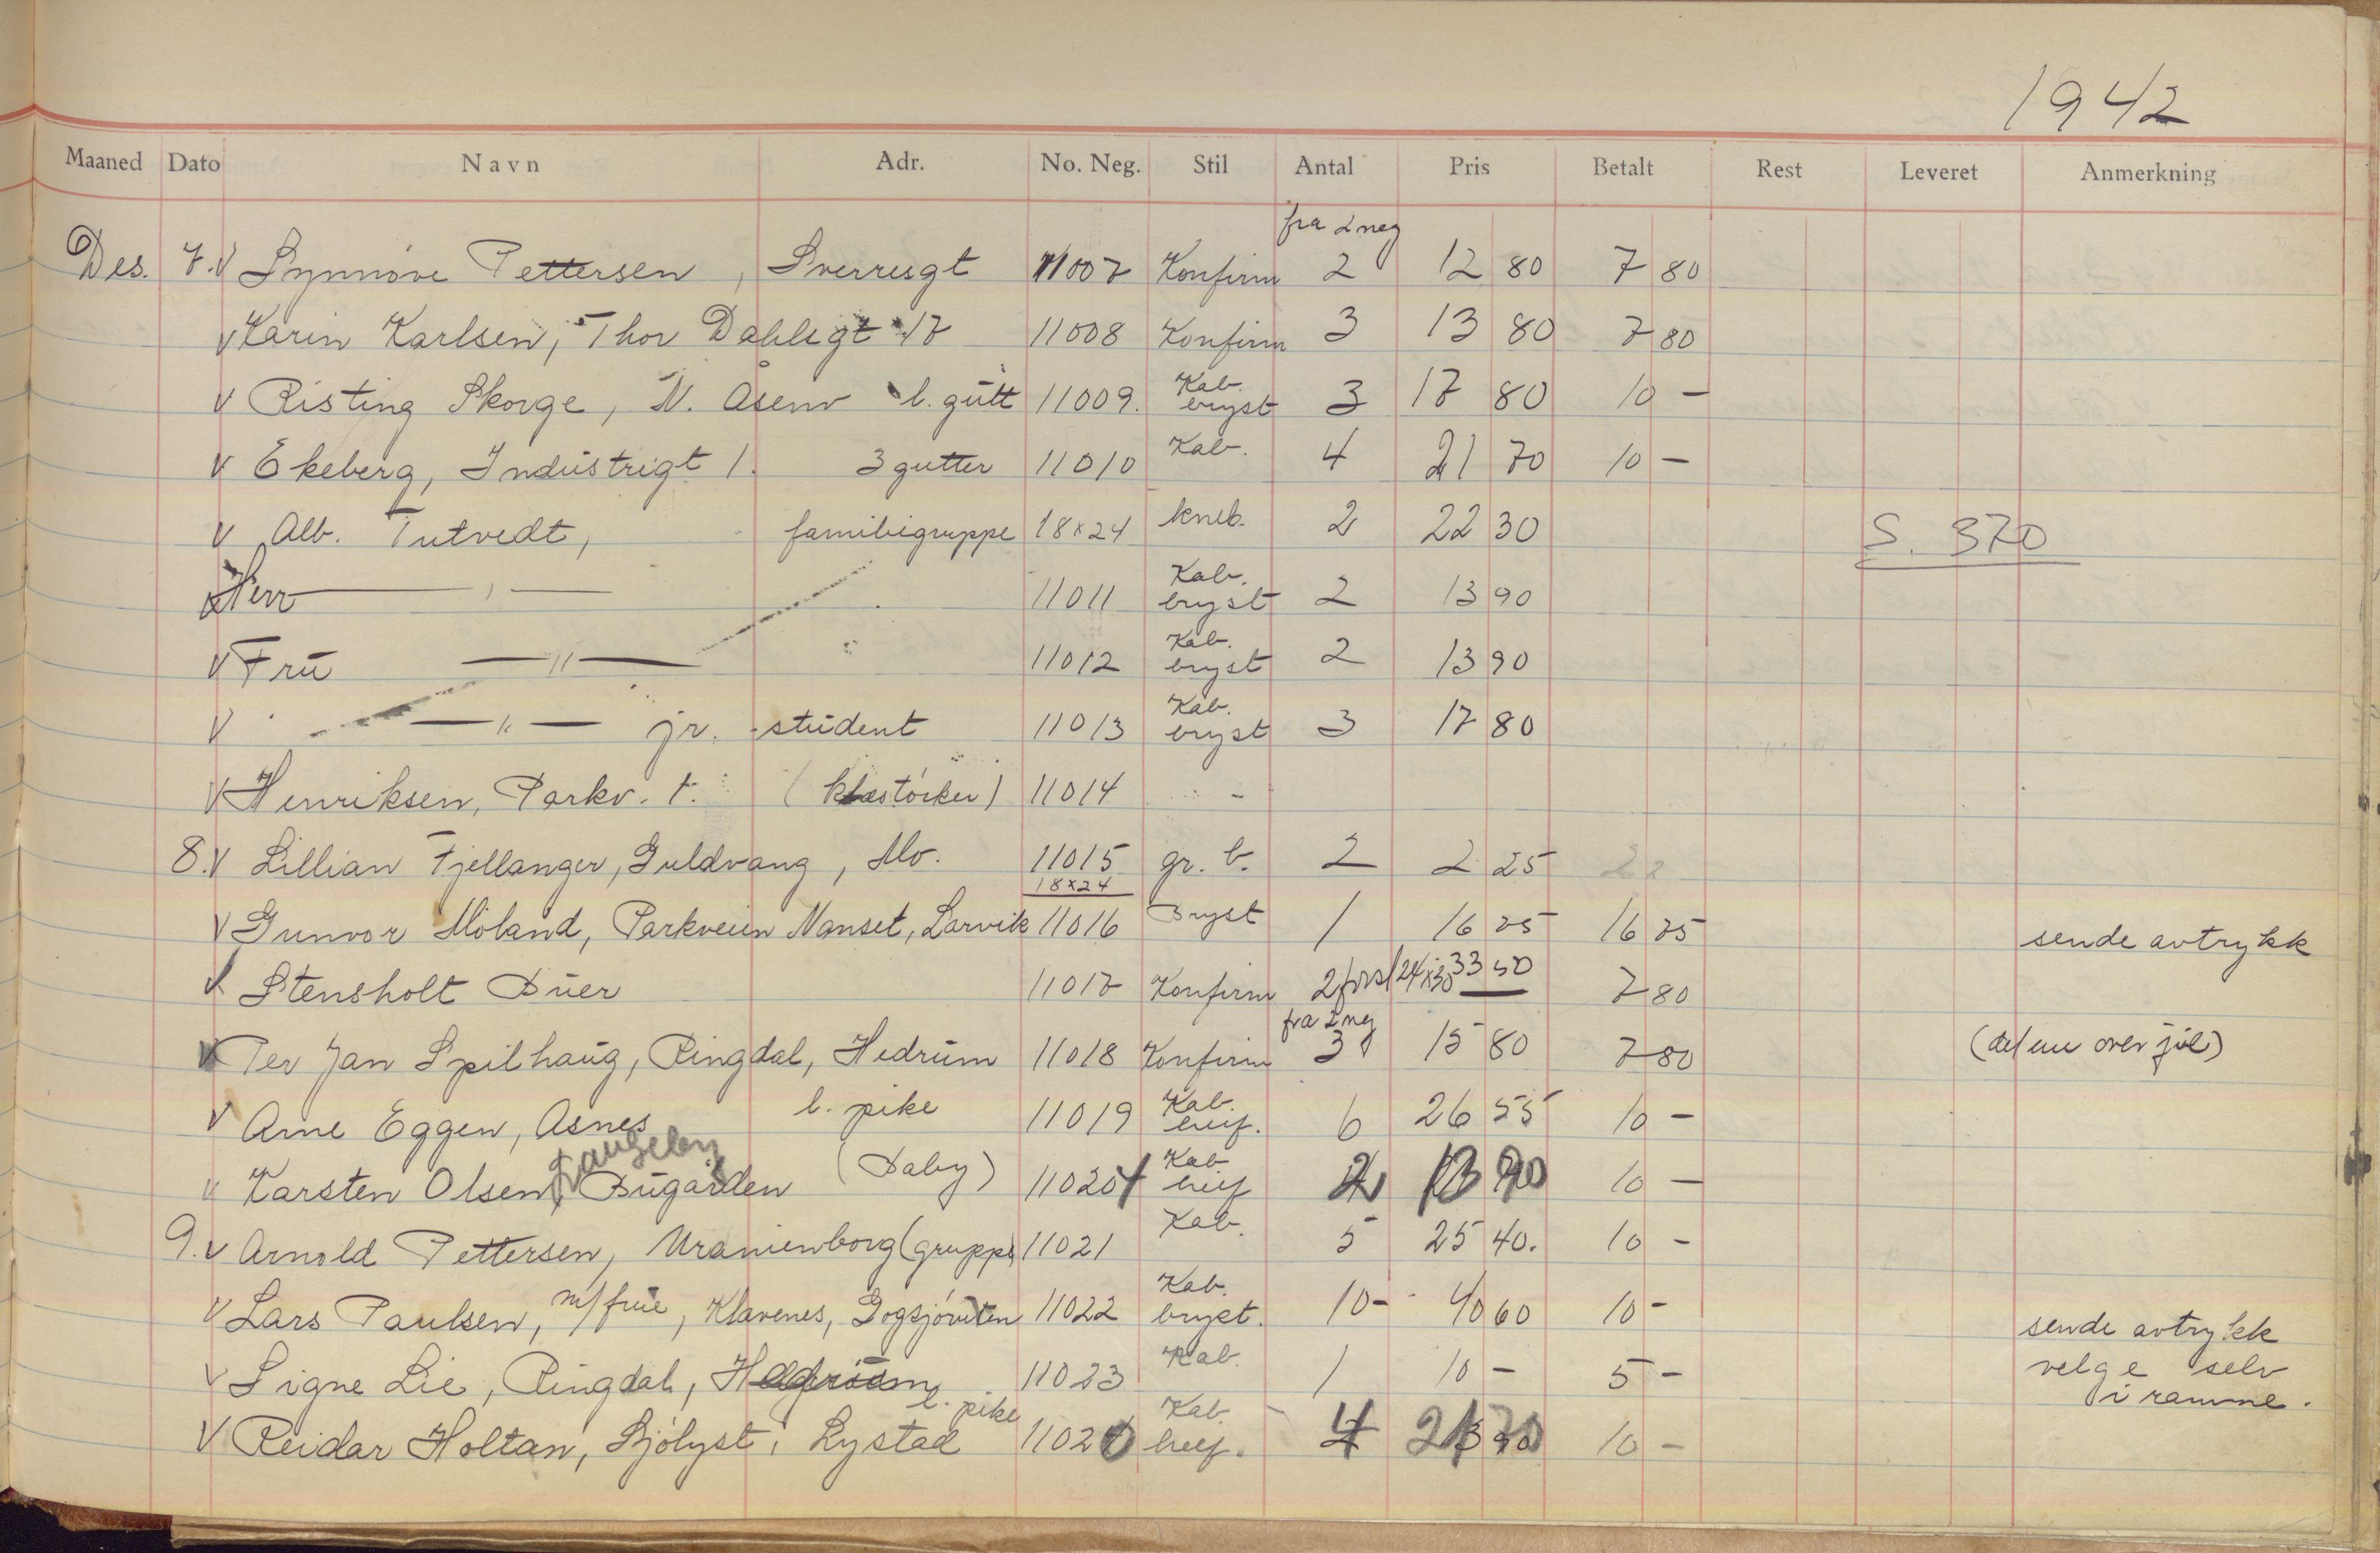 1942
Maaned Dato Navn Adr. No. Neg. Stil Antal Pris Betalt Rest Leveret Anmerkning
fra 2 neg
Des. 7. V Synnøve Pettersen, Sverresgt 11007 Konfirm 2 12 80 7 80
V Karin Karlsen, Thor Dahlsgt 17 11008 Konfirm 3 13 80 7 80
V Risting Skorge, N. Åsenv l. gutt 11009. Kab. bryst 3 17 80 10 -
V Ekeberg, Industrigt 1. 3 gutter 11010 Kab. 4 21 70 10 -
V Alb. Tutvedt, familiegruppe 18x24 kneb. 2 22 30 S. 370
Herr — " — 11011 Kab. bryst 2 13 90
V Fru — " — 11012 Kab. bryst 2 13 90
V — " — jr. student 11013 Kab. bryst 3 17 80
V Henriksen, Parkv. 1. 11014 -
8. V Lillian Fjellanger, Guldvang, Mo. 11015 gr. b. 2 2 25
18x24
V Gunvor Moland, Parkveien Nanset, Larvik 11016 Bryst 1 16 25 16 25 sende avtrykk
V Stensholt Buer 11017 Konfirm 2 forst 24x30 33 50 7 80
fra 2 neg
V Per Jan Spilhaug, Ringdal, Hedrum 11018 Konfirm 3 15 80 7 80 over jul)
V Arne Eggen, Asnes l. pike 11019 Kab. huf. 6 26 55 10 -
V Karsten Olsen, Bugården (Baby) 11024 Kab helf 2 13 90 10 -
9. V Arnold Pettersen, Uranienborg (gruppe) 11021 Kab. 5 25 40. 10 -
V Lars Paulsen, m/frue, Klavenes, Gogsjøruten 11022 Kab. bryst. 10 - 40 60 10 - sende avtrykk
V Signe Lie, Ringdal, Hedrum 11023 Kab. 1 10 - 5 - velge selv
i ramme.
l. pike
V Reidar Holtan, Sjølyst, Lystad 11020 Kab. helf. 4 21 70 10 -